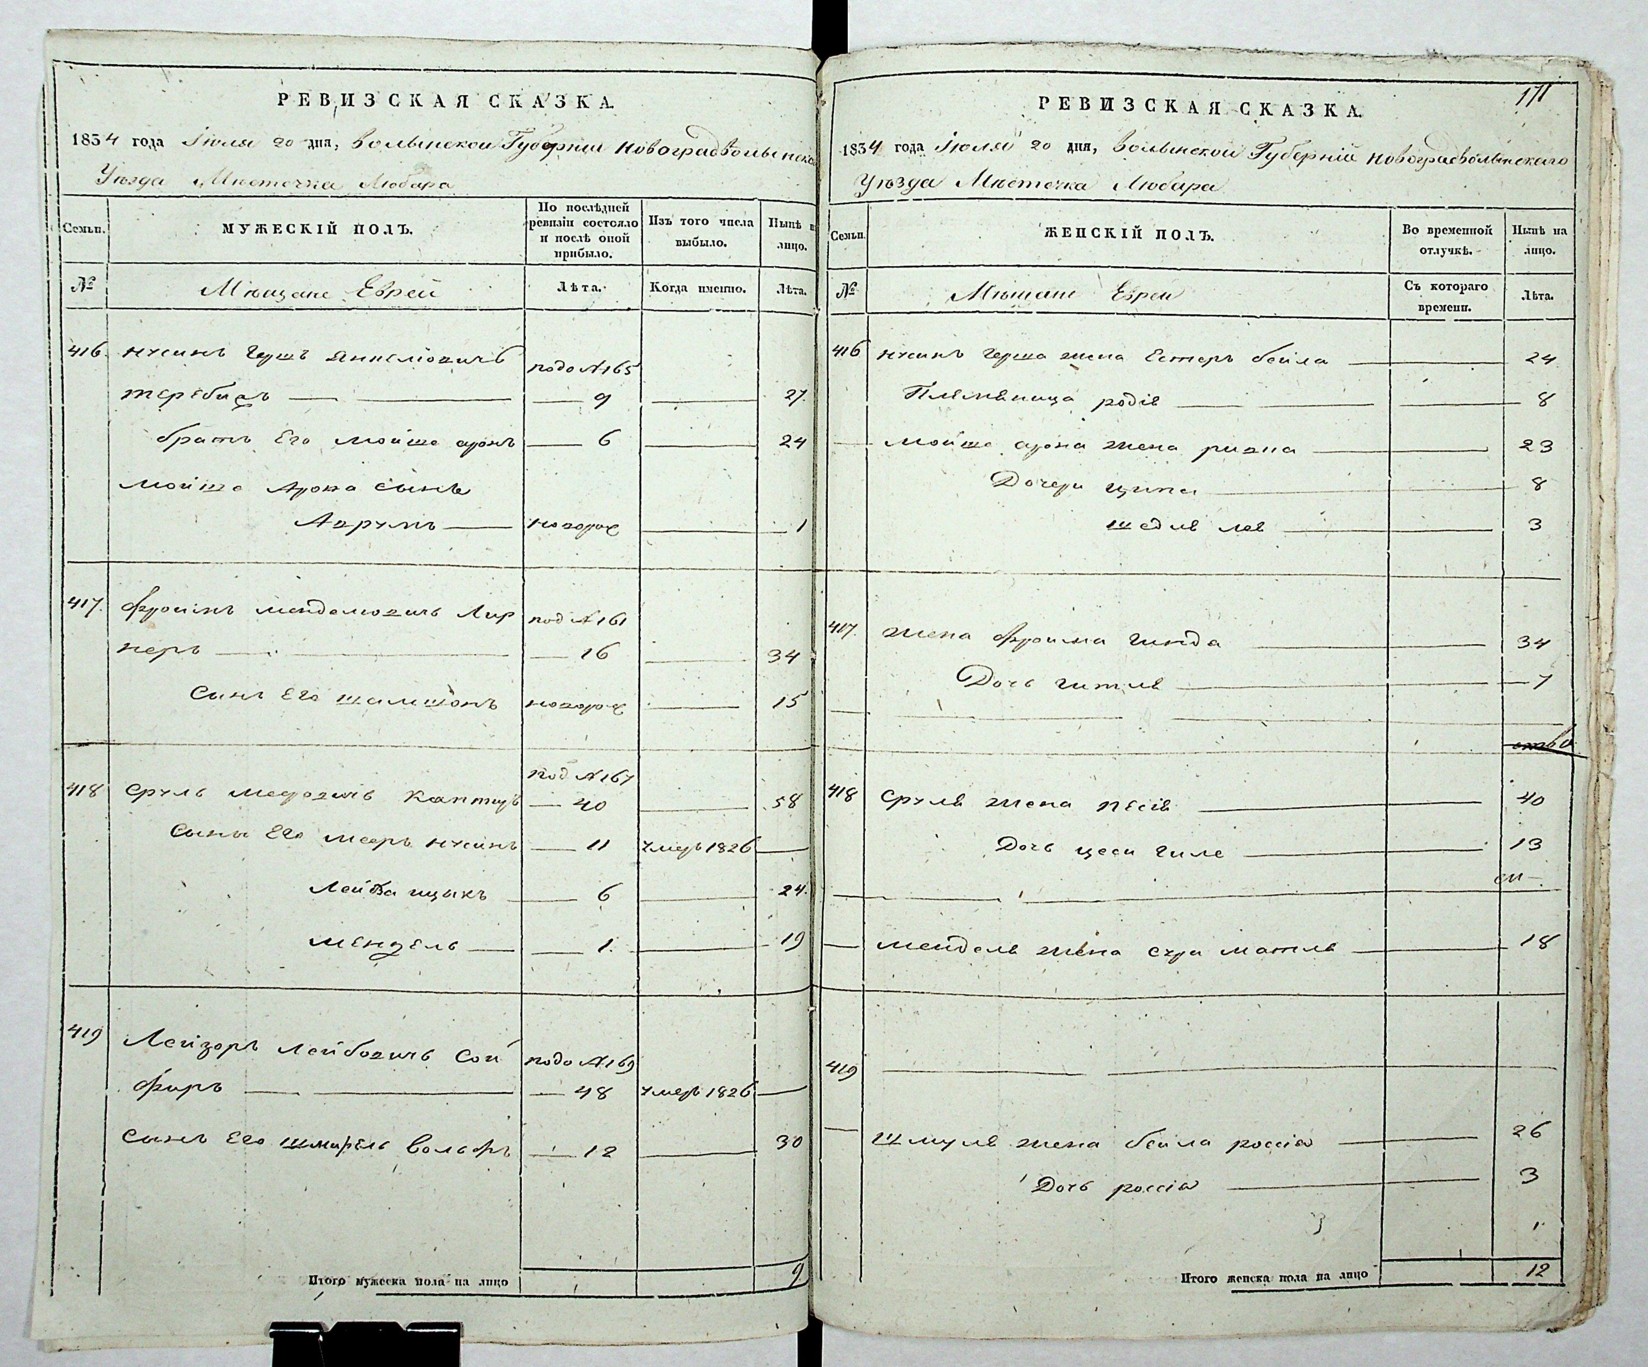 РЕВИЗСКАЯ СКАЗКА.
1834 года Июля 20 дня, Волынской Губерніи Новоградволынска
Уѣзда Мѣстечка Любара
Семьи.
МУЖЕСКІЙ ПОЛЪ.
По послѣдней ревизіи состояло и послѣ оной прибыло.
Изъ того числа выбыло.
Нынѣ н лицо.
№
Мѣщане Евреи
Лѣта.
Когда именно.
Лѣта.
416 Нусинъ Гершъ подо №165
— 9 — 27
братъ Его Мойше аронъ — 6 — 24
Мойше Арона сынъ
Аврумъ — новорож — 1
417. Фроимъ Мендлевичъ Лир под №161
неръ — 16 — 34
Сынъ Его Шамшонъ новорож — 15
под №167
418 Сруль — 40 — 58
Сыны Его Мееръ Нусинъ — 11 умеръ 1826 —
Лейба ицыкъ — 6 — 24.
Мендель — 1. — 19
419 Лейзоръ Лейбовичъ Сой подо №169
фиръ — 48 умеръ 1826 —
Сынъ Его Вольфъ — 12 — 30
Итого мужеска пола на лицо 9
171
РЕВИЗСКАЯ СКАЗКА.
1834 года Июля 20 дня, Волынской Губерніи Новоградволынскаго
Уѣзда Мѣстечка Любара
Семьи.
ЖЕНСКІЙ ПОЛЪ.
Во временной отлучкѣ.
Нынѣ на лицо.
№
Мѣщане Евреи
Съ котораго времени.
Лѣта.
416 Нусинъ Герша жена Естеръ бейла — 24
Племяница — 8
— Мойше арона жена ривка — 23
Дочери ципа — 8
шейдля лея — 3
417. жена Фроима Гинда — 34
Дочь гитля — 7
418 Сруля жена песя — 40
Дочь — 13
— Мендель жена сура матля — 18
419 —
— Шмуля жена бейла — 26
Дочь — 3
Итого женска пола на лицо 12